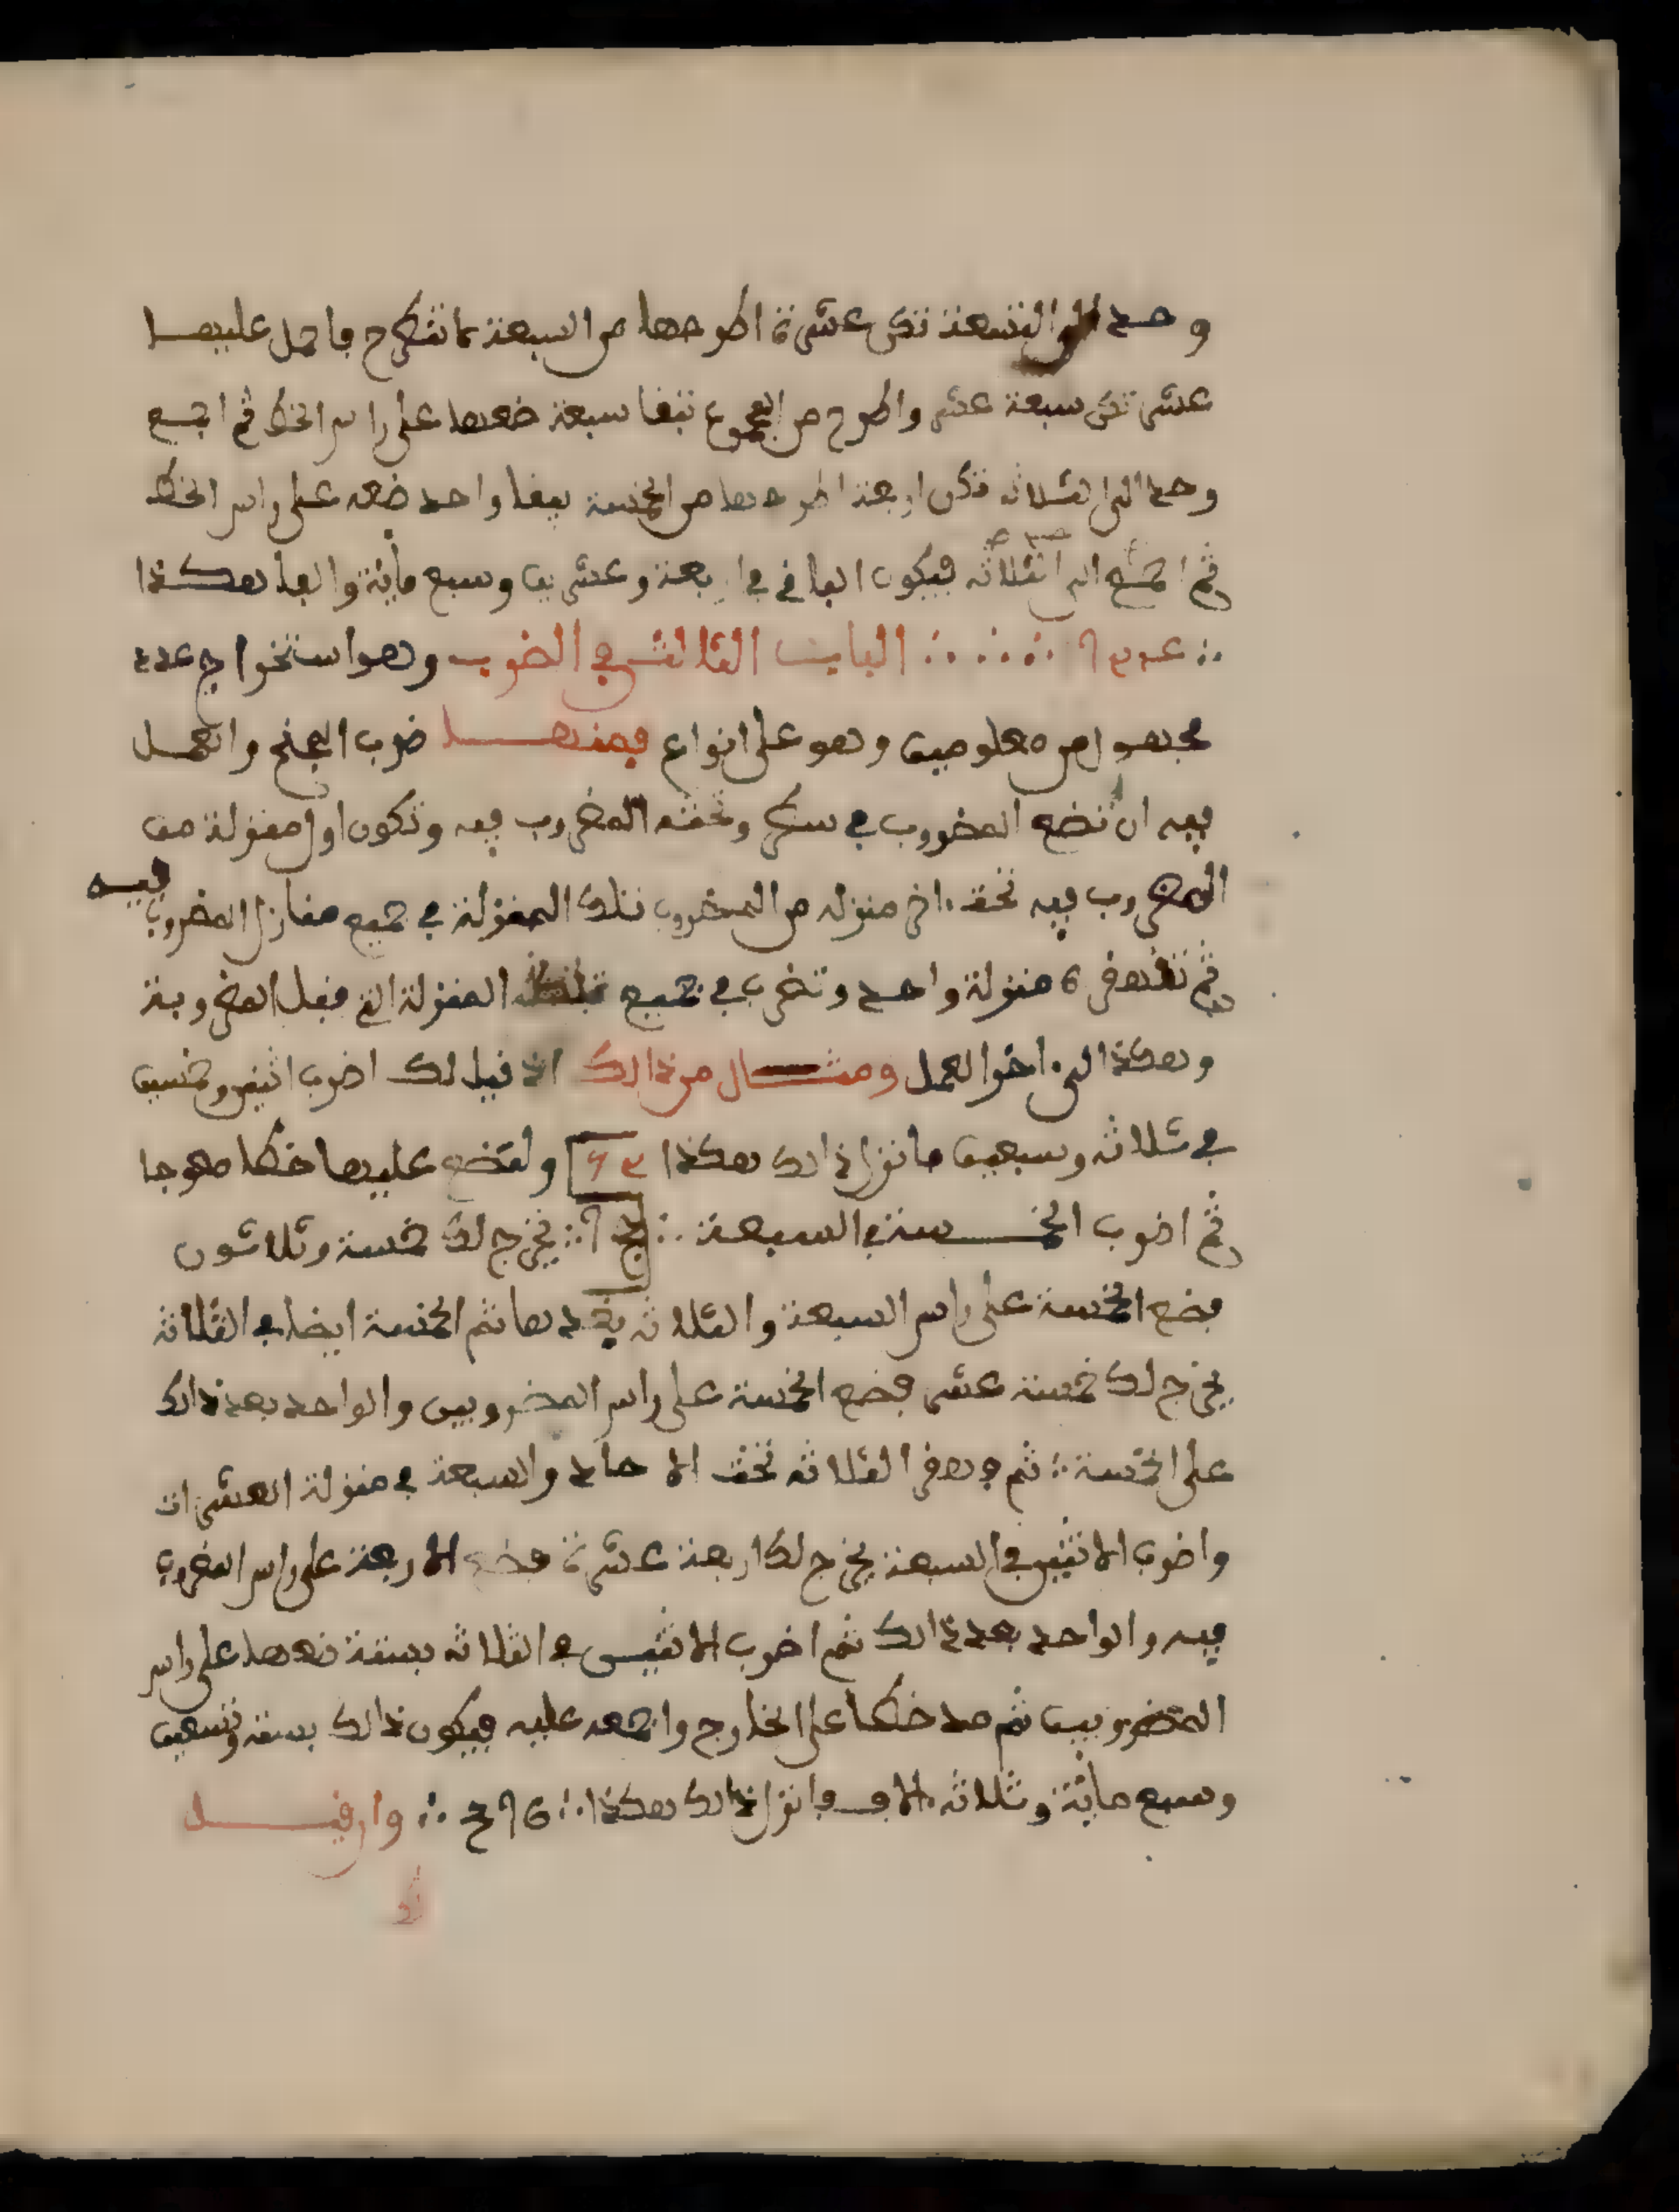 وحد الى التسعة تكن عشرة اطرحها من السبعة ما تطرح فاحمل عليها
عشر تكن سبعة عشر واطرح من المجموع تبقا سبعة ضعها على راس الخط ثم اجمع
وحد الى الثلاثه تكن اربعة اطرحها من الخمسة يبقا واحد ضعه على راس الخط
ثم اجمع الى الثلاثه فيكون الباقي اربعة وعشرين وسبع ماية والفا هكذا
الباب الثالث في الضرب وهو استخراج عدد
مجهول من معلومين وهو على انواع فمنها ضرب المجنح والعمل
فيه ان تضع المضروب في سطر وتحته المضروب فيه وتكون اول منزلة من
المضروب فيه تحت ءاخر منزله من المضروب تلك المنزلة في جميع منازل المضروب فيه
ثم تقهقره منزلة واحد وتضرب في جميع المنزلة التي قبل المضروبة
وهكذا الى ءاخر العمل ومثال من ذالك اذ قيل لك اضرب اثنين وخمسين
في ثلاثه وسبعين فانزل ذالك هكذا ولتضع عليها خطا معوجا
ثم اضرب الخمسة في السبعة يخرج لك خمسة وثلاثون
فضع الخمسة على راس السبعة والثلاثه بعدها ثم الخمسة ايضا في الثلاثه
يخرج لك خمسة عشر فضع الخمسة على راس المضروبين والواحد بعد ذالك
على الخمسة ثم قهقر الثلاثه تحت الاحاد والسبعة في منزلة العشرات
واضرب الاثنين في السبعة يخرج لك اربعة عشرة فضع الاربعة على راس المضروب
فيه والواحد بعد ذالك ثم اضرب الاثنين في الثلاثه بستة ضعها على راس
المضروبين ثم مد خطا على الخارج واجمعه عليه فيكون ذالك بستة وتسعين
وسبع ماية وثلاثه ءالاف فانزل ذالك هكذا وان قيل